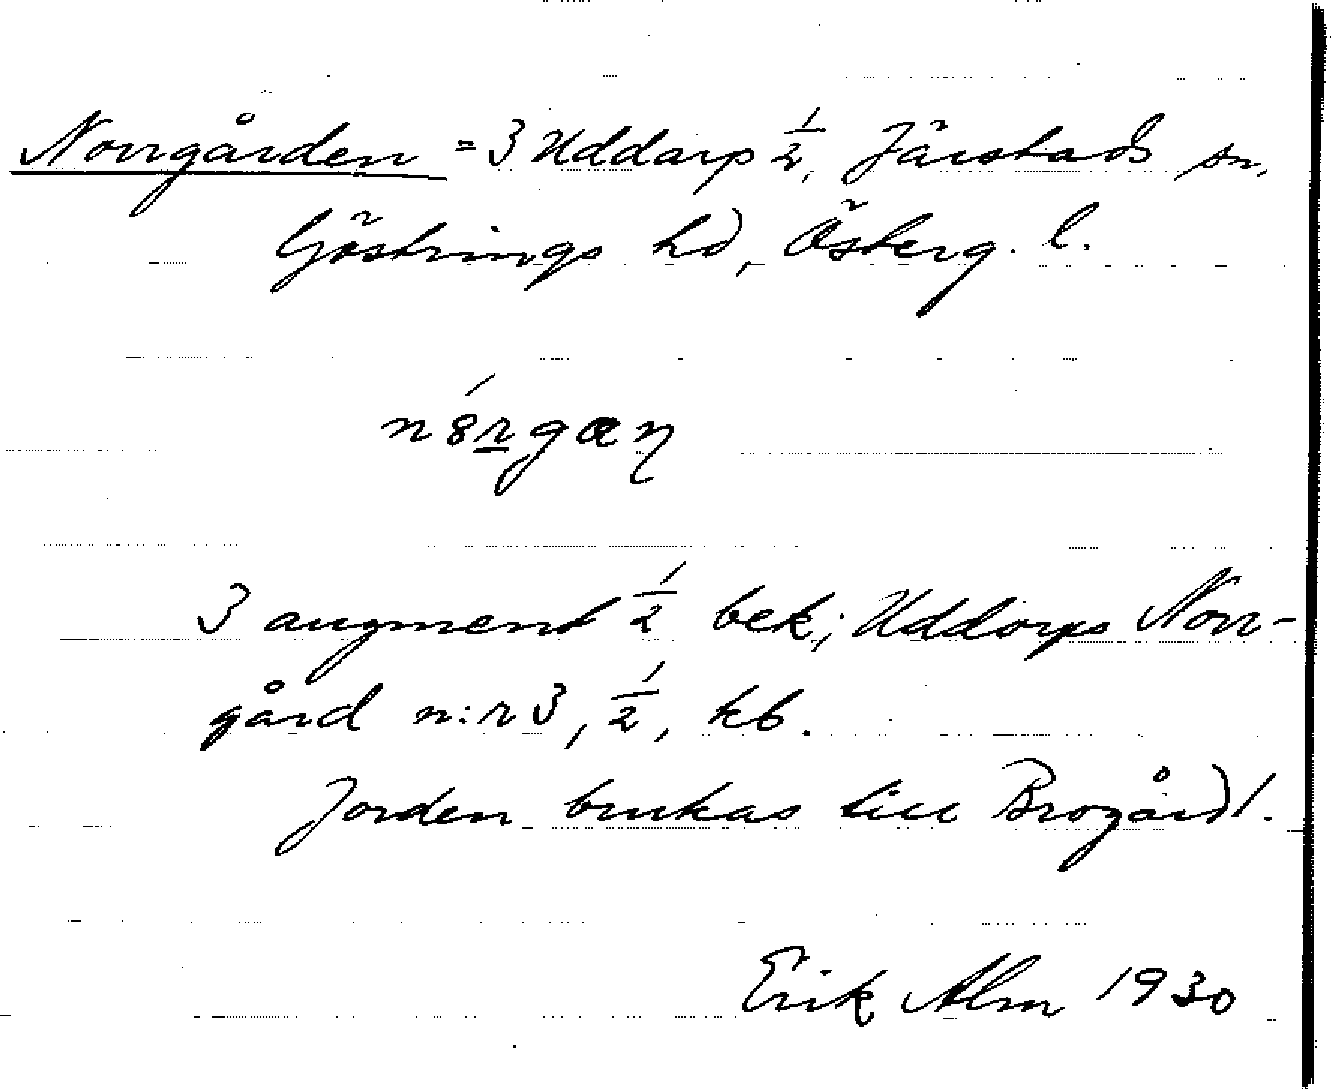 Norrgården = 3 Uddarp 1/2, Järstads sn,
Göstrings hd, Österg. l.
3 augment 1/2 bek; Uddorps Norr-
gård n:r 3, 1/2, kb.
Jorden brukas till Brogård 1.
Erik Alm 1930